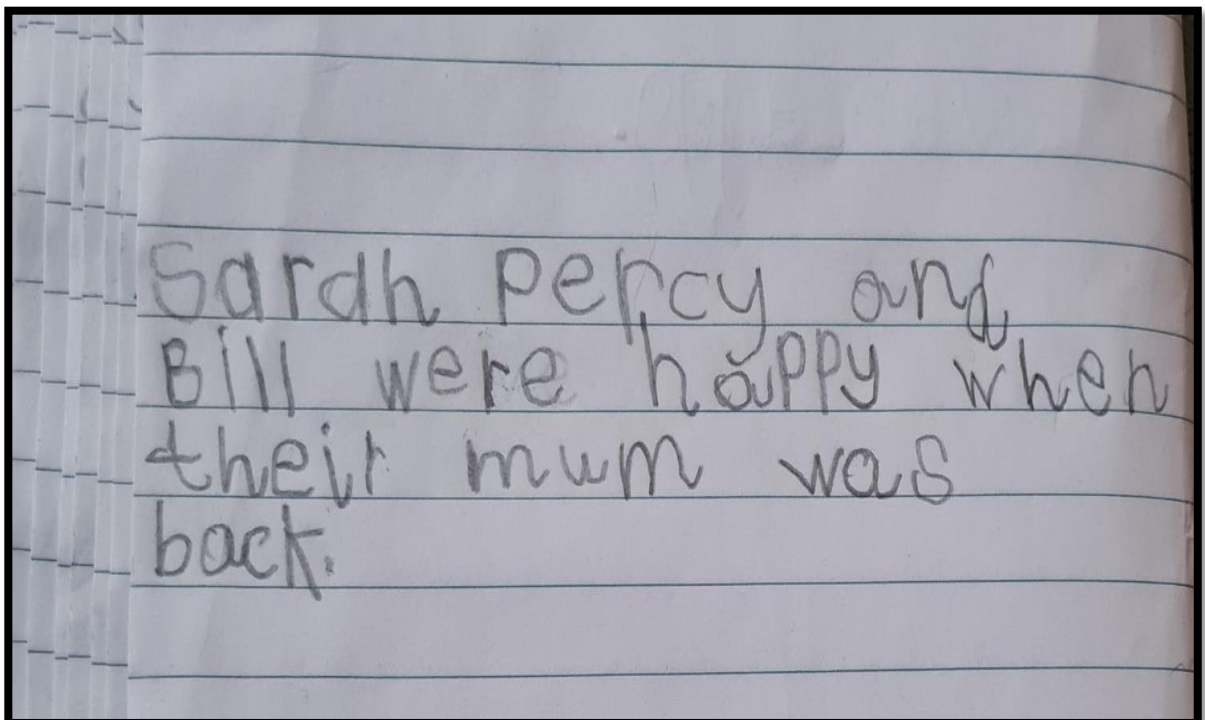 Sarah Percy and
Bill were happy when
their mum was
back.